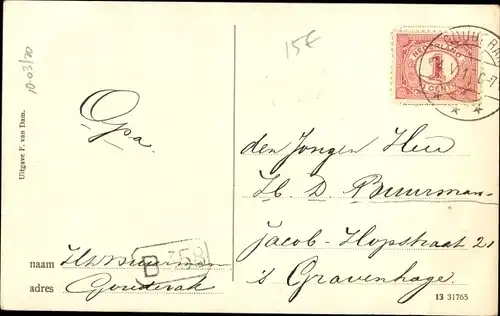 15€
10.03/20
NEDERLAND
1
CENT
Uitgave F. van Dam.
Opa.
den Jongen Heer
H. D. Buurman
Jacob-Hopstraat 21
's Gravenhage.
naam Buurman
B 358
adres Gouderak
13 31765